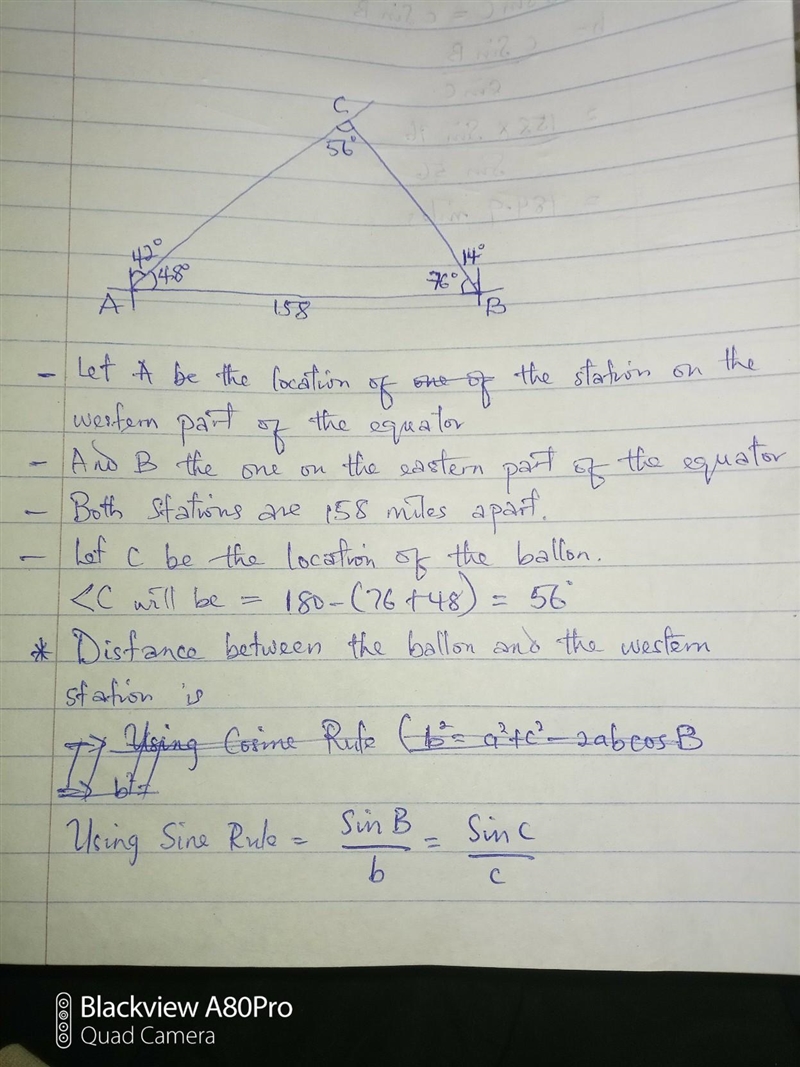 C
56°
42°
48°
14°
76°
A
158
B
- Let A be the location of one of the station on the
western part of the equator
- And B the one on the eastern part of the equator
- Both stations are 158 miles apart.
- Let C be the location of the ballon.
<C will be = 180-(76+48) = 56°
* Distance between the ballon and the western
station is
Using Cosine Rule (b² = a²+c² - 2abcosB
b²=
Using Sine Rule = Sin B / b = Sin C / c
Blackview A80Pro
Quad Camera